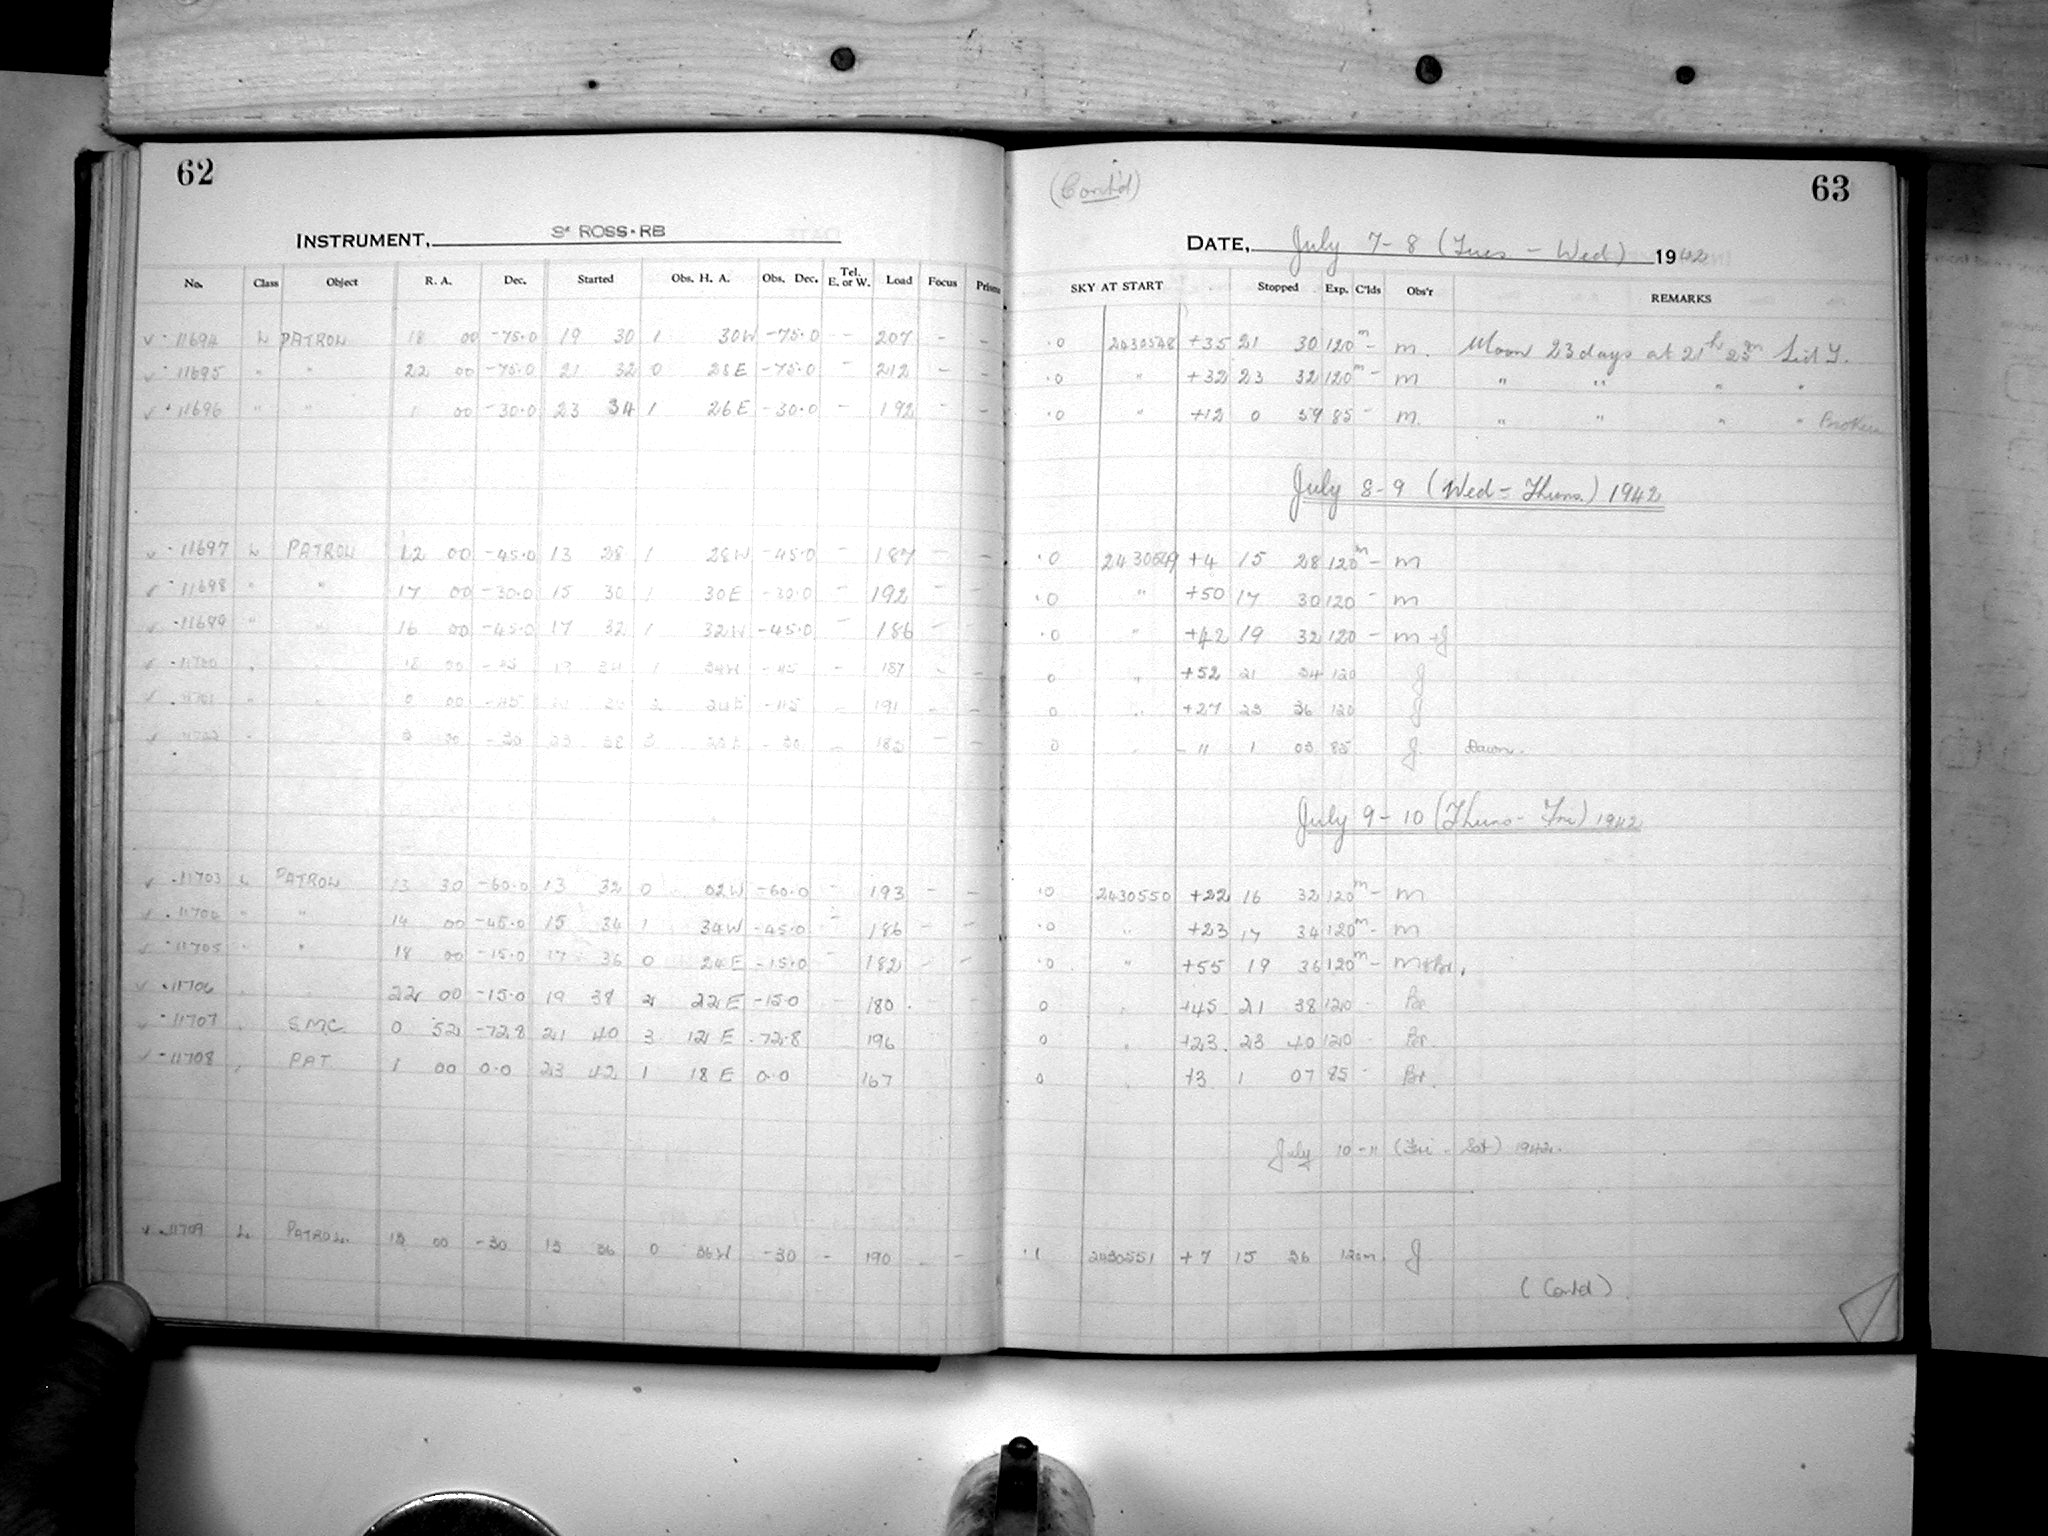 62
INSTRUMENT, ROSS-RB
No. Class Object R. A. Dec. Started Obs. H. A. Obs. Dec. Tel. E. or W. Load Focus Prisms
11694 L PATROL 18 00 -75.0 19 30 1 30W -75.0 - 207 - -
11695 " " 22 00 -75.0 21 32 0 28E -75.0 - 212 - -
11696 " " 1 00 -30.0 23 34 1 26E -30.0 - 192 - -
11697 L PATROL 12 00 -45.0 13 28 1 28W -45.0 - 187 - -
11698 " " 17 00 -30.0 15 30 1 30E -30.0 - 192 - -
11699 " " 16 00 -45.0 17 32 1 32W -45.0 - 186 - -
11700 18 00 -45 19 34 1 34W -45 - 187 - -
11701 0 00 191 - -
11702 - 30 23 38 3 - 30
11703 L PATROL 13 30 -60.0 13 32 0 02W -60.0 - 193 - -
11704 " " 14 00 -45.0 15 34 1 34W -45.0 - 186 - -
11705 " " 18 00 -15.0 17 36 0 24E -15.0 - 182 - -
11706 22 00 -15.0 19 38 2 22E -15.0 - 180
11707 S.M.C. 0 52 -72.8 21 40 3 12E -72.8 196
11708 PAT. 1 00 0.0 23 42 1 18E 0.0 167
11709 L PATROL. 13 00 -30 13 36 0 36W -30 - 190 - -
(Cont'd)
63
DATE, July 7-8 (Tues - Wed) 1942
SKY AT START Stopped Exp. C'lds Obs'r REMARKS
.0 2430548 +35 21 30 120m - m. Moon 23 days at 21h 23m Sid T.
.0 " +32 23 32 120m - m " " " "
.0 " +12 0 59 85 - m. " " " " Broken
July 8-9 (Wed - Thurs.) 1942
.0 2430549 +4 15 28 120m - m
.0 " +50 17 30 120 - m
.0 " +42 19 32 120 - m + J
0 " +52 21 34 120 J
0 " +27 23 36 120 J
0 " - 11 1 03 85 J Dawn.
July 9-10 (Thurs - Fri) 1942
.0 2430550 +22 16 32 120m - m
.0 " +23 17 34 120m - m
.0 " +55 19 36 120m - m + Br.
0 " +45 21 38 120 - Br
0 " +23 23 40 120 - Br.
0 +3 1 07 85 - Br.
July 10-11 (Fri - Sat) 1942.
.1 2430551 +7 15 36 120m. J
(Contd).